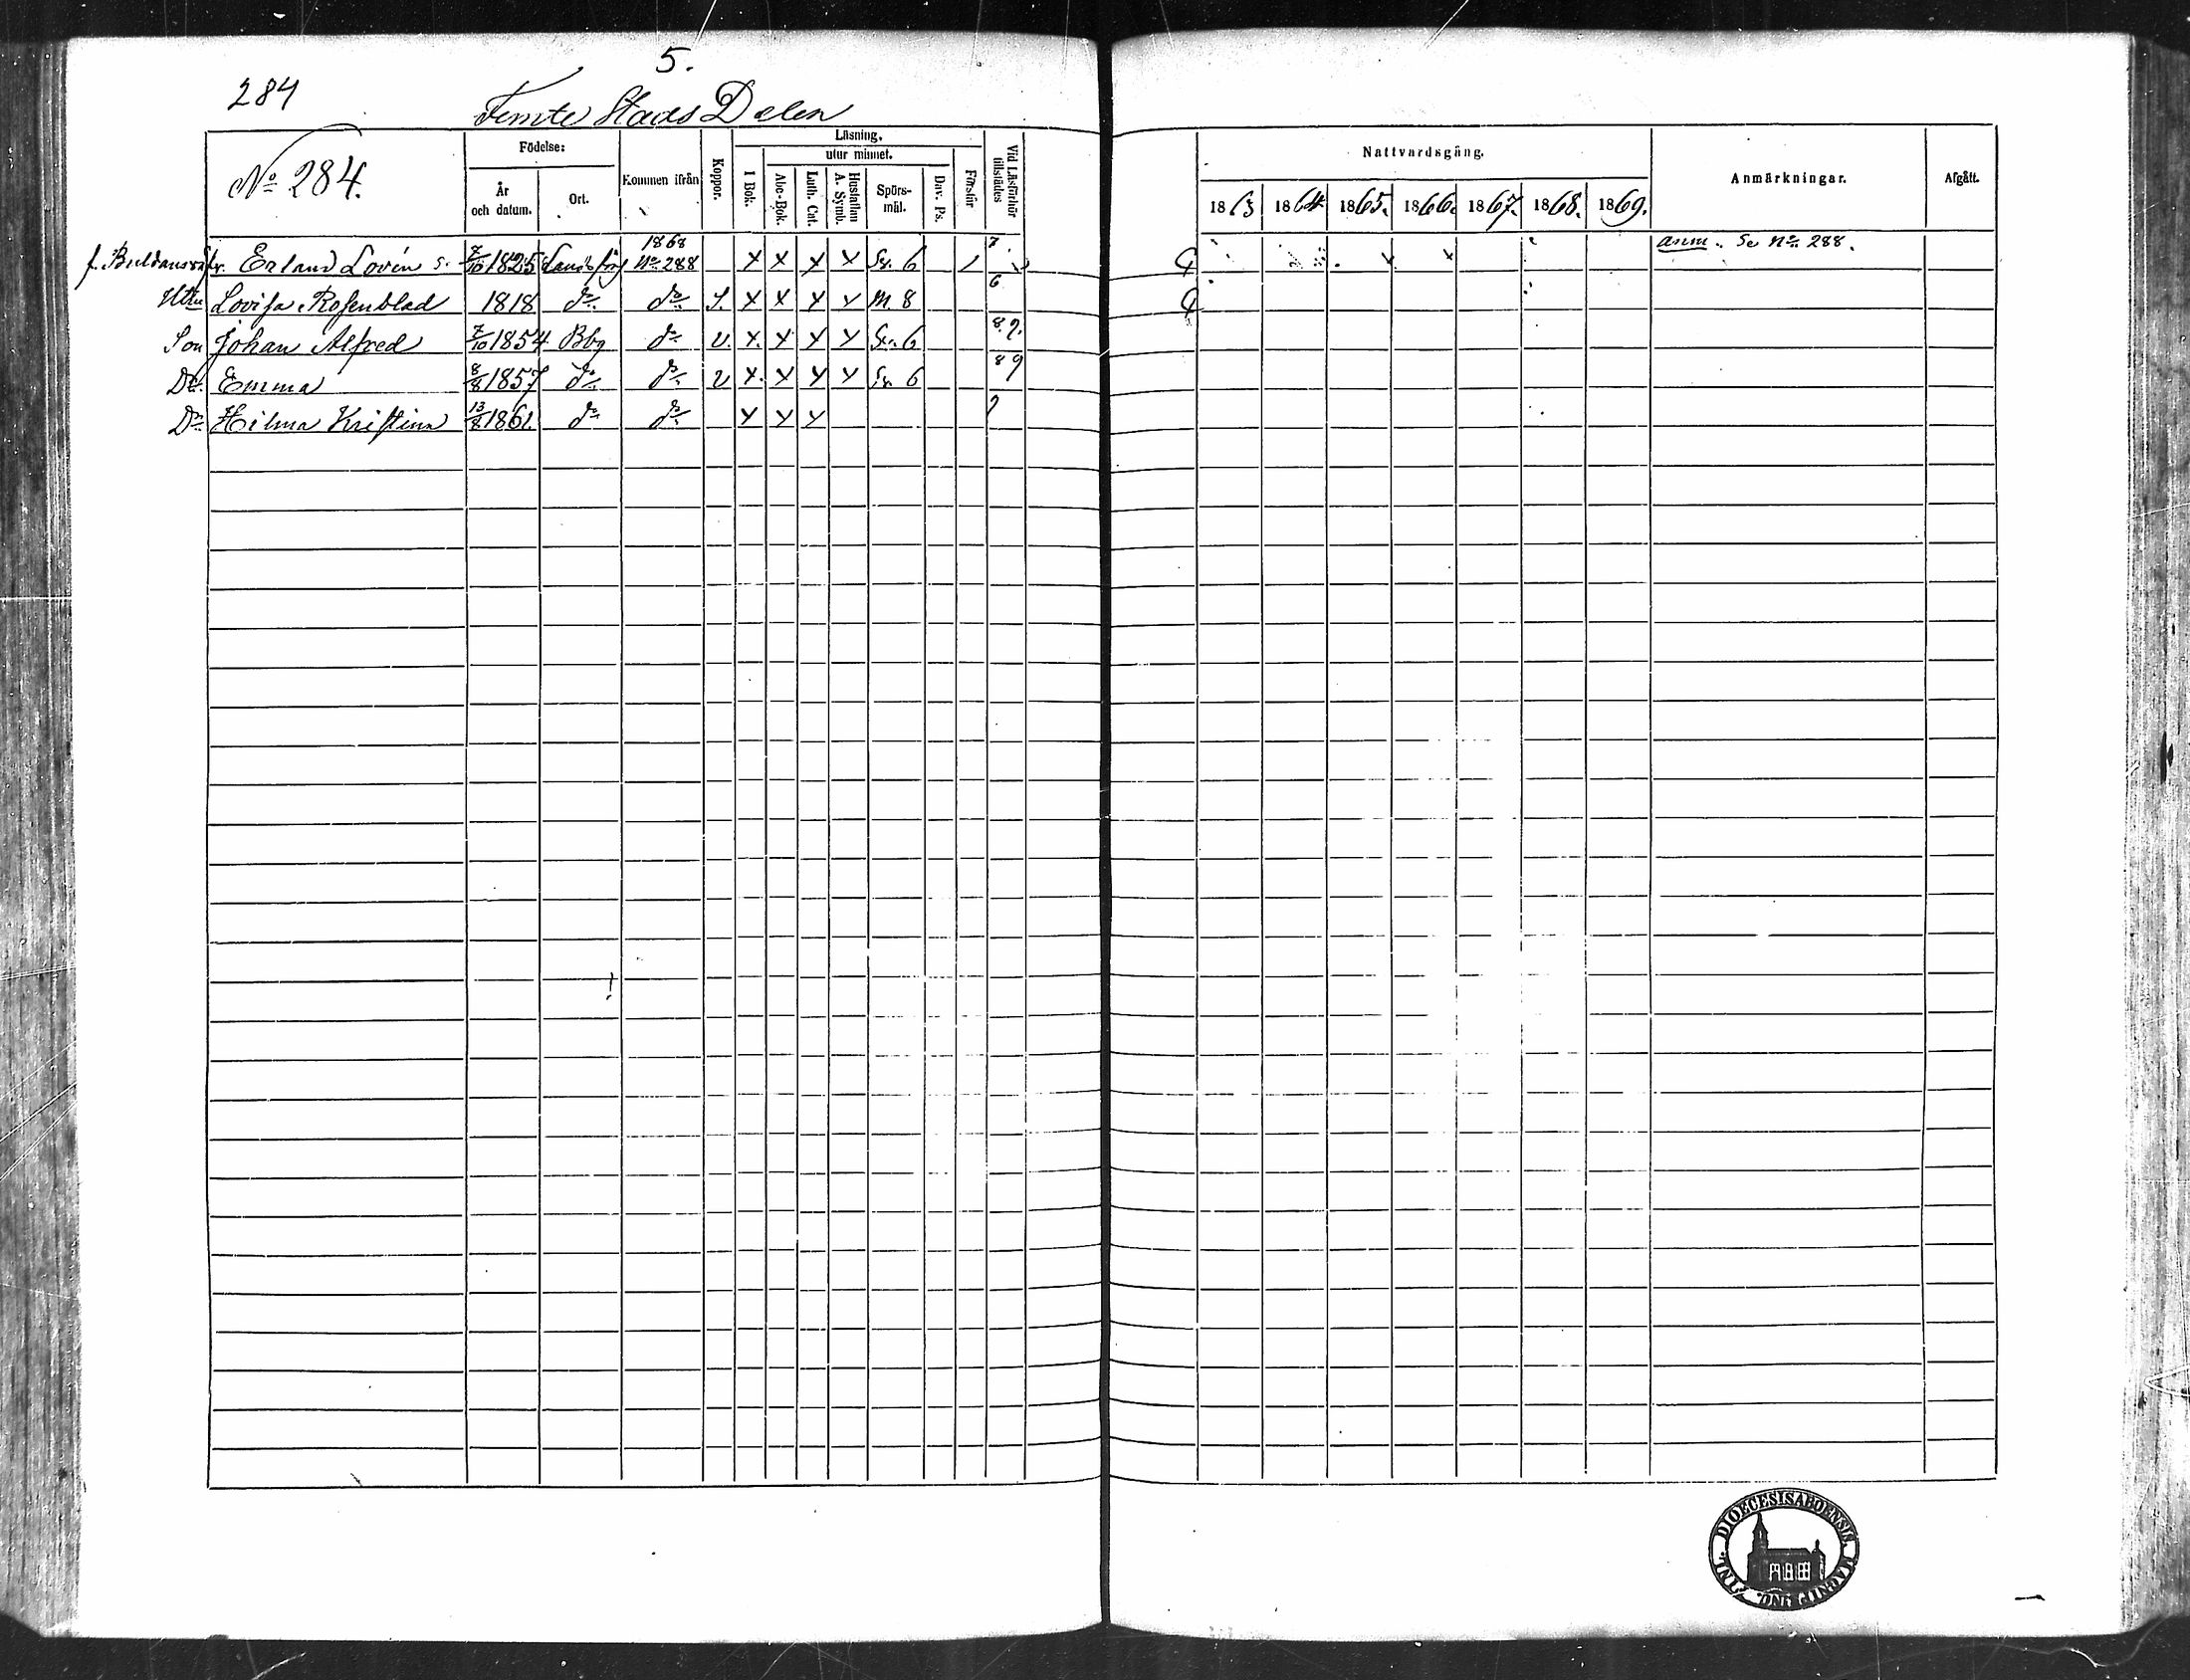 5.
284
Femte Stads Delen
No 284.
Födelse:
År och datum.
Ort.
Kommen ifrån
Koppor.
Läsning.
I Bok.
utur minnet.
Abc-Bok.
Luth. Cat.
Hustaflan A. Symb.
Spörsmål.
Dav. Ps.
Förstår
Vid Läsförhör tillstädes
Nattvardsgång.
1863 1864 1865. 1866. 1867. 1868. 1869.
Anmärkningar.
Afgått.
Erland Lovén 7/10 1825 1868 No 288 x x x x Sv. 6 / 7. anm. Se No 288.
Hu Lovisa Rosenblad 1818 do do S. x x x x M. 8 6
Son Johan Alfred 7/10 1854 Bbg do v. x. x x x Sv. 6 8.9.
Dr. Emma 8/8 1857 do do v x. x x x Sv. 6 8 9
Dr. Hilma Kristina 13/8 1861. do do x x x 9
SIGILL. DIOECESIS ABOENSIS MAGNI DUC. FINL.